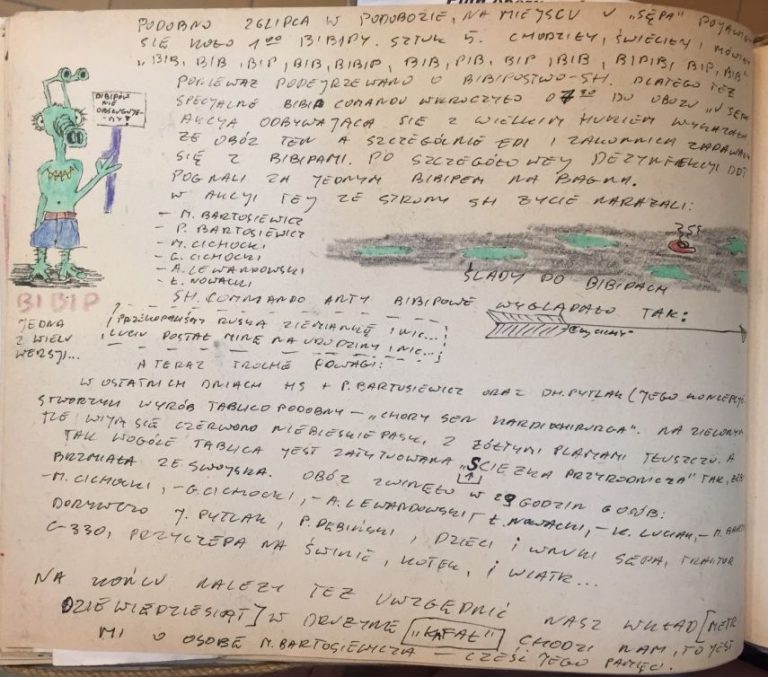 PODOBNO 26 LIPCA W PODOBOZIE, NA MIEJSCU U „SĘPA" POJAWIŁY
SIĘ KOŁO 1⁰⁰ BIBIPY. SZTUK 5. CHODZIŁY, ŚWIECIŁY I MÓWIŁY
„BIB, BIB, BIP, BIB, BIBIP, BIB, PIB, BIP, BIB, BIPIB, BIP, BIB"
PONIEWAŻ PODEJRZEWANO O BIBIPOSTWO-SH. DLATEGO TEŻ
SPECJALNE BIBIP COMANDO WKROCZYŁO O DO OBOZU „U SĘPA
AKCJA ODBYWAJĄCA SIĘ Z WIELKIM HUKIEM WYKAZAŁA
ŻE OBÓZ TEN A SZCZEGÓLNIE EDI I ZADAWALI
SIĘ Z BIBIPAMI. PO SZCZEGÓŁOWEJ DEZYNFEKCJI DDT
POGNALI ZA JEDNYM BIBIPEM NA BAGNA.
W AKCJI TEJ ZE STRONY SH ŻYCIE NARAŻALI:
BIBIPÓW
NIE
- M. BARTOSIEWICZ
- P. BARTOSIEWICZ
- M. CICHOCKI
- G. CICHOCKI
- A. LEWANDOWSKI
- Ł. NOWACKI
ŚLADY PO BIBIPACH
BIBIP
JEDNA
Z WIELU
WERSJI...
SH. COMMANDO ANTY BIBIPOWE WYGLĄDAŁO TAK:
RUSKĄ ZIEMIANKĘ I NIC...
LUCIU DOSTAŁ MINĘ NA URODZINY I NIC...
A TERAZ TROCHĘ POWAGI:
W OSTATNICH DNIACH HS + P. BARTOSIEWICZ ORAZ DH. PYTLAK (JEGO KONCEPCJA)
STWORZYLI WYRÓB TABLICO PODOBNY – „CHORY SEN KARDIOCHIRURGA". NA ZIELONYM
TLE WIJĄ SIĘ CZERWONO NIEBIESKIE PASKI, Z ŻÓŁTYMI PLAMAMI TŁUSZCZU. A
TAK WOGÓLE TABLICA JEST ZATYTUOWANA „SCIEZKA PRZYRODNICZA" TAK, ŻEBY
BRZMIAŁA ZE SWOJSKA. OBÓZ ZWINĘŁO W 29 GODZIN 6 OSÓB:
- M. CICHOCKI, - G. CICHOCKI, - A. LEWANDOWSKI, - Ł. NOWACKI, - K. LUCIAK, - M. BART
DORYWCZO J. PYTLAK, P. DĘBIŃSKI, DZIECI I WNUKI SĘPA, TRAKTOR
C-330, PRZYCZEPA NA ŚWINIE, KOTEK, I WIATR...
NA KOŃCU NALEŻY TEŻ UWZGĘDNIĆ NASZ WKŁAD [METR
DZIEWIĘDZIESIĄT] W DRUŻYNĘ „KAFAŁ" CHODZI NAM, TO JEST
MI O OSOBĘ M. BARTOSIEWICZA – CZEŚĆ JEGO PAMIĘCI.